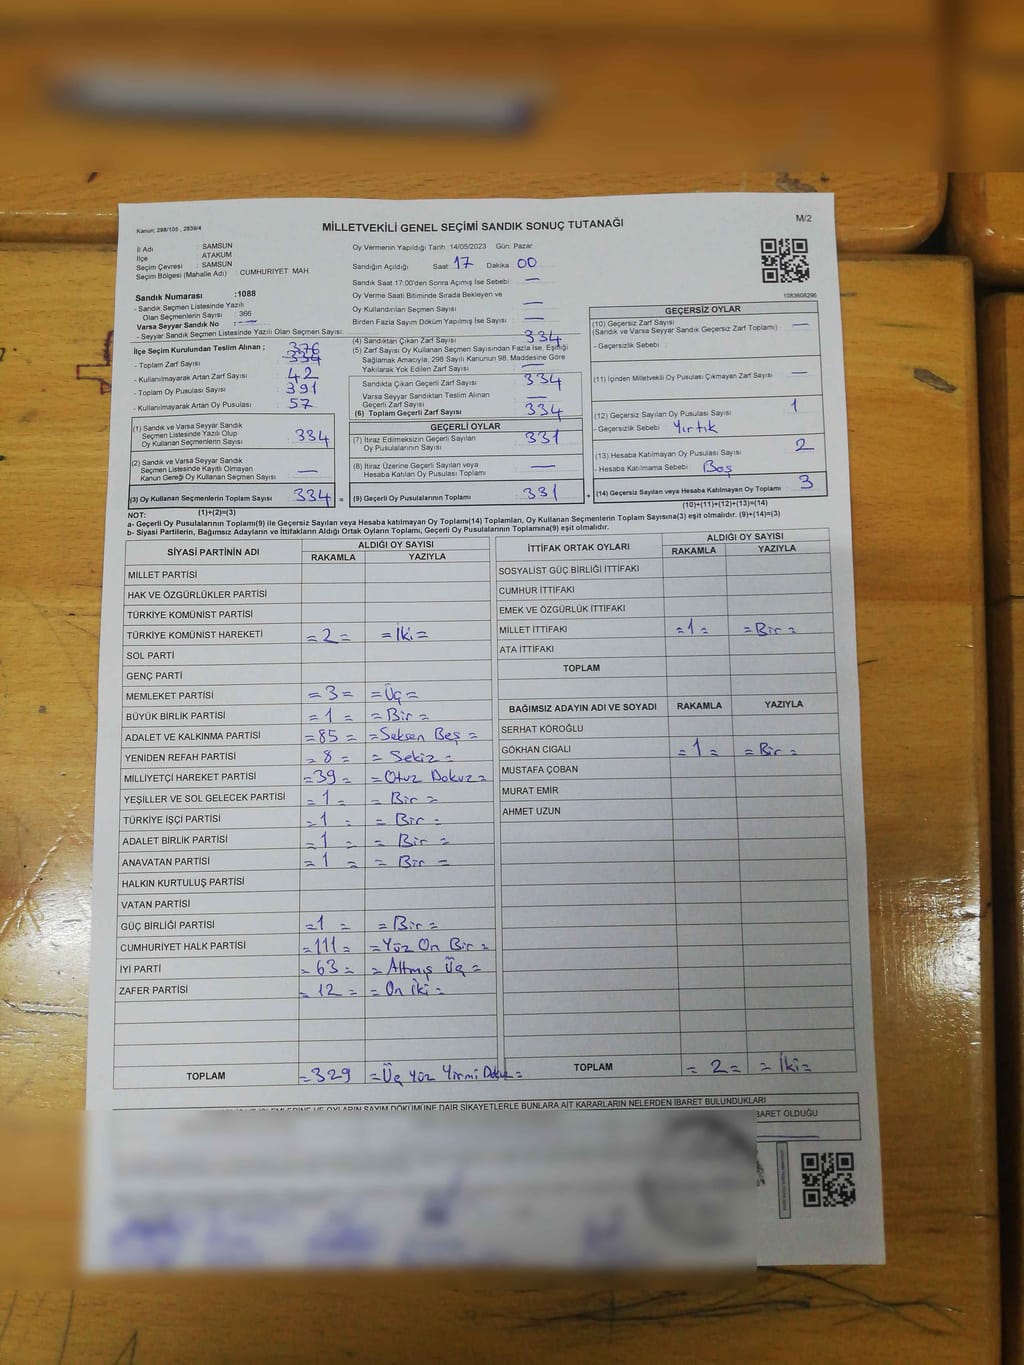 Kanun: 298/105 , 2839/4
MİLLETVEKİLİ GENEL SEÇİMİ SANDIK SONUÇ TUTANAĞI
M/2
İl Adı : SAMSUN
İlçe : ATAKUM
Seçim Çevresi : SAMSUN
Seçim Bölgesi (Mahalle Adı) CUMHURIYET MAH.
Sandık Numarası :1088
- Sandık Seçmen Listesinde Yazılı
Olan Seçmenlerin Sayısı : 366
Varsa Seyyar Sandık No : —
- Seyyar Sandık Seçmen Listesinde Yazılı Olan Seçmen Sayısı:
Oy Vermenin Yapıldığı Tarih :14/05/2023 Gün: Pazar
Sandığın Açıldığı Saat 17 Dakika : 00
Sandık Saat 17:00'den Sonra Açımış İse Sebebi : —
Oy Verme Saati Bitiminde Sırada Bekleyen ve
Oy Kullandırılan Seçmen Sayısı : —
Birden Fazla Sayım Döküm Yapılmış İse Sayısı : —
1083608296
İlçe Seçim Kurulundan Teslim Alınan ;
- Toplam Zarf Sayısı : 376 334
- Kullanılmayarak Artan Zarf Sayısı : 42
- Toplam Oy Pusulası Sayısı : 391
- Kullanılmayarak Artan Oy Pusulası : 57
(1) Sandık ve Varsa Seyyar Sandık
Seçmen Listesinde Yazılı Olup
Oy Kullanan Seçmenlerin Sayısı : 334
(2) Sandık ve Varsa Seyyar Sandık
Seçmen Listesinde Kayıtlı Olmayan
Kanun Gereği Oy Kullanan Seçmen Sayısı : —
(3) Oy Kullanan Seçmenlerin Toplam Sayısı : 334 =
(1)+(2)=(3)
(4) Sandıktan Çıkan Zarf Sayısı : 334
(5) Zarf Sayısı Oy Kullanan Seçmen Sayısından Fazla İse, Eşitliği
Sağlamak Amacıyla; 298 Sayılı Kanunun 98. Maddesine Göre
Yakılarak Yok Edilen Zarf Sayısı : —
Sandıkta Çıkan Geçerli Zarf Sayısı : 334
Varsa Seyyar Sandıktan Teslim Alınan
Geçerli Zarf Sayısı : —
(6) Toplam Geçerli Zarf Sayısı : 334
GEÇERLİ OYLAR
(7) İtiraz Edilmeksizin Geçerli Sayılan
Oy Pusulası Sayısı : 331
(8) İtiraz Üzerine Geçerli Sayılan veya
Hesaba Katılan Oy Pusulası Toplamı : —
(9) Geçerli Oy Pusulalarının Toplamı : 331 +
GEÇERSİZ OYLAR
(10) Geçersiz Zarf Sayısı
(Sandık ve Varsa Seyyar Sandık Geçersiz Zarf Toplamı) : —
- Geçersizlik Sebebi :
(11) İçinden Milletvekili Oy Pusulası Çıkmayan Zarf Sayısı : —
(12) Geçersiz Sayılan Oy Pusulası Sayısı : 1
- Geçersizlik Sebebi Yırtık
(13) Hesaba Katılmayan Oy Pusulası Sayısı : 2
- Hesaba Katılmama Sebebi : Boş
(14) Geçersiz Sayılan veya Hesaba Katılmayan Oy Toplamı : 3
(10)+(11)+(12)+(13)=(14)
NOT:
a- Geçerli Oy Pusulalarının Toplamı(9) ile Geçersiz Sayılan veya Hesaba katılmayan Oy Toplam(14) Toplamları, Oy Kullanan Seçmenlerin Toplam Sayısına(3) eşit olmalıdır. (9)+(14)=(3)
b- Siyasi Partilerin, Bağımsız Adayların ve İttifakların Aldığı Ortak Oyların Toplamı, Geçerli Oy Pusulalarının Toplamına(9) eşit olmalıdır.
SİYASİ PARTİNİN ADI ALDIĞI OY SAYISI
RAKAMLA YAZIYLA
MİLLET PARTİSİ
HAK VE ÖZGÜRLÜKLER PARTİSİ
TÜRKİYE KOMÜNİST PARTİSİ
TÜRKİYE KOMÜNİST HAREKETİ =2= =İki=
SOL PARTİ
GENÇ PARTİ
MEMLEKET PARTİSİ =3= =Üç=
BÜYÜK BİRLİK PARTİSİ =1= =Bir=
ADALET VE KALKINMA PARTİSİ =85= =Seksen Beş=
YENİDEN REFAH PARTİSİ =8= =Sekiz=
MİLLİYETÇİ HAREKET PARTİSİ =39= =Otuz Dokuz=
YEŞİLLER VE SOL GELECEK PARTİSİ =1= =Bir=
TÜRKİYE İŞÇİ PARTİSİ =1= =Bir=
ADALET BİRLİK PARTİSİ =1= =Bir=
ANAVATAN PARTİSİ =1= =Bir=
HALKIN KURTULUŞ PARTİSİ
VATAN PARTİSİ
GÜÇ BİRLİĞİ PARTİSİ =1= =Bir=
CUMHURİYET HALK PARTİSİ =111= =Yüz On Bir=
İYİ PARTİ =63= =Altmış Üç=
ZAFER PARTİSİ =12= =On İki=
TOPLAM =329 =Üç Yüz Yirmi Dokuz=
İTTİFAK ORTAK OYLARI ALDIĞI OY SAYISI
RAKAMLA YAZIYLA
SOSYALİST GÜÇ BİRLİĞİ İTTİFAKI
CUMHUR İTTİFAKI
EMEK VE ÖZGÜRLÜK İTTİFAKI
MİLLET İTTİFAKI =1= =Bir=
ATA İTTİFAKI
TOPLAM
BAĞIMSIZ ADAYIN ADI VE SOYADI RAKAMLA YAZIYLA
SERHAT KÖROĞLU
GÖKHAN CIGALI =1= =Bir=
MUSTAFA ÇOBAN
MURAT EMİR
AHMET UZUN
TOPLAM =2= =İki=
OYLARIN SAYIM DÖKÜMÜNE DAİR ŞİKAYETLERLE BUNLARA AİT KARARLARIN NELERDEN İBARET BULUNDUKLARI
OLDUĞU